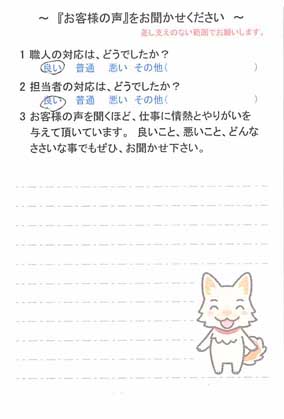 ～ 『お客様の声』をお聞かせください ～
差し支えのない範囲でお願いします。
1 職人の対応は、どうでしたか？
良い 普通 悪い その他( )
2 担当者の対応は、どうでしたか？
良い 普通 悪い その他( )
3 お客様の声を聞くほど、仕事に情熱とやりがいを
与えて頂いています。 良いこと、悪いこと、どんな
ささいな事でもぜひ、お聞かせ下さい。